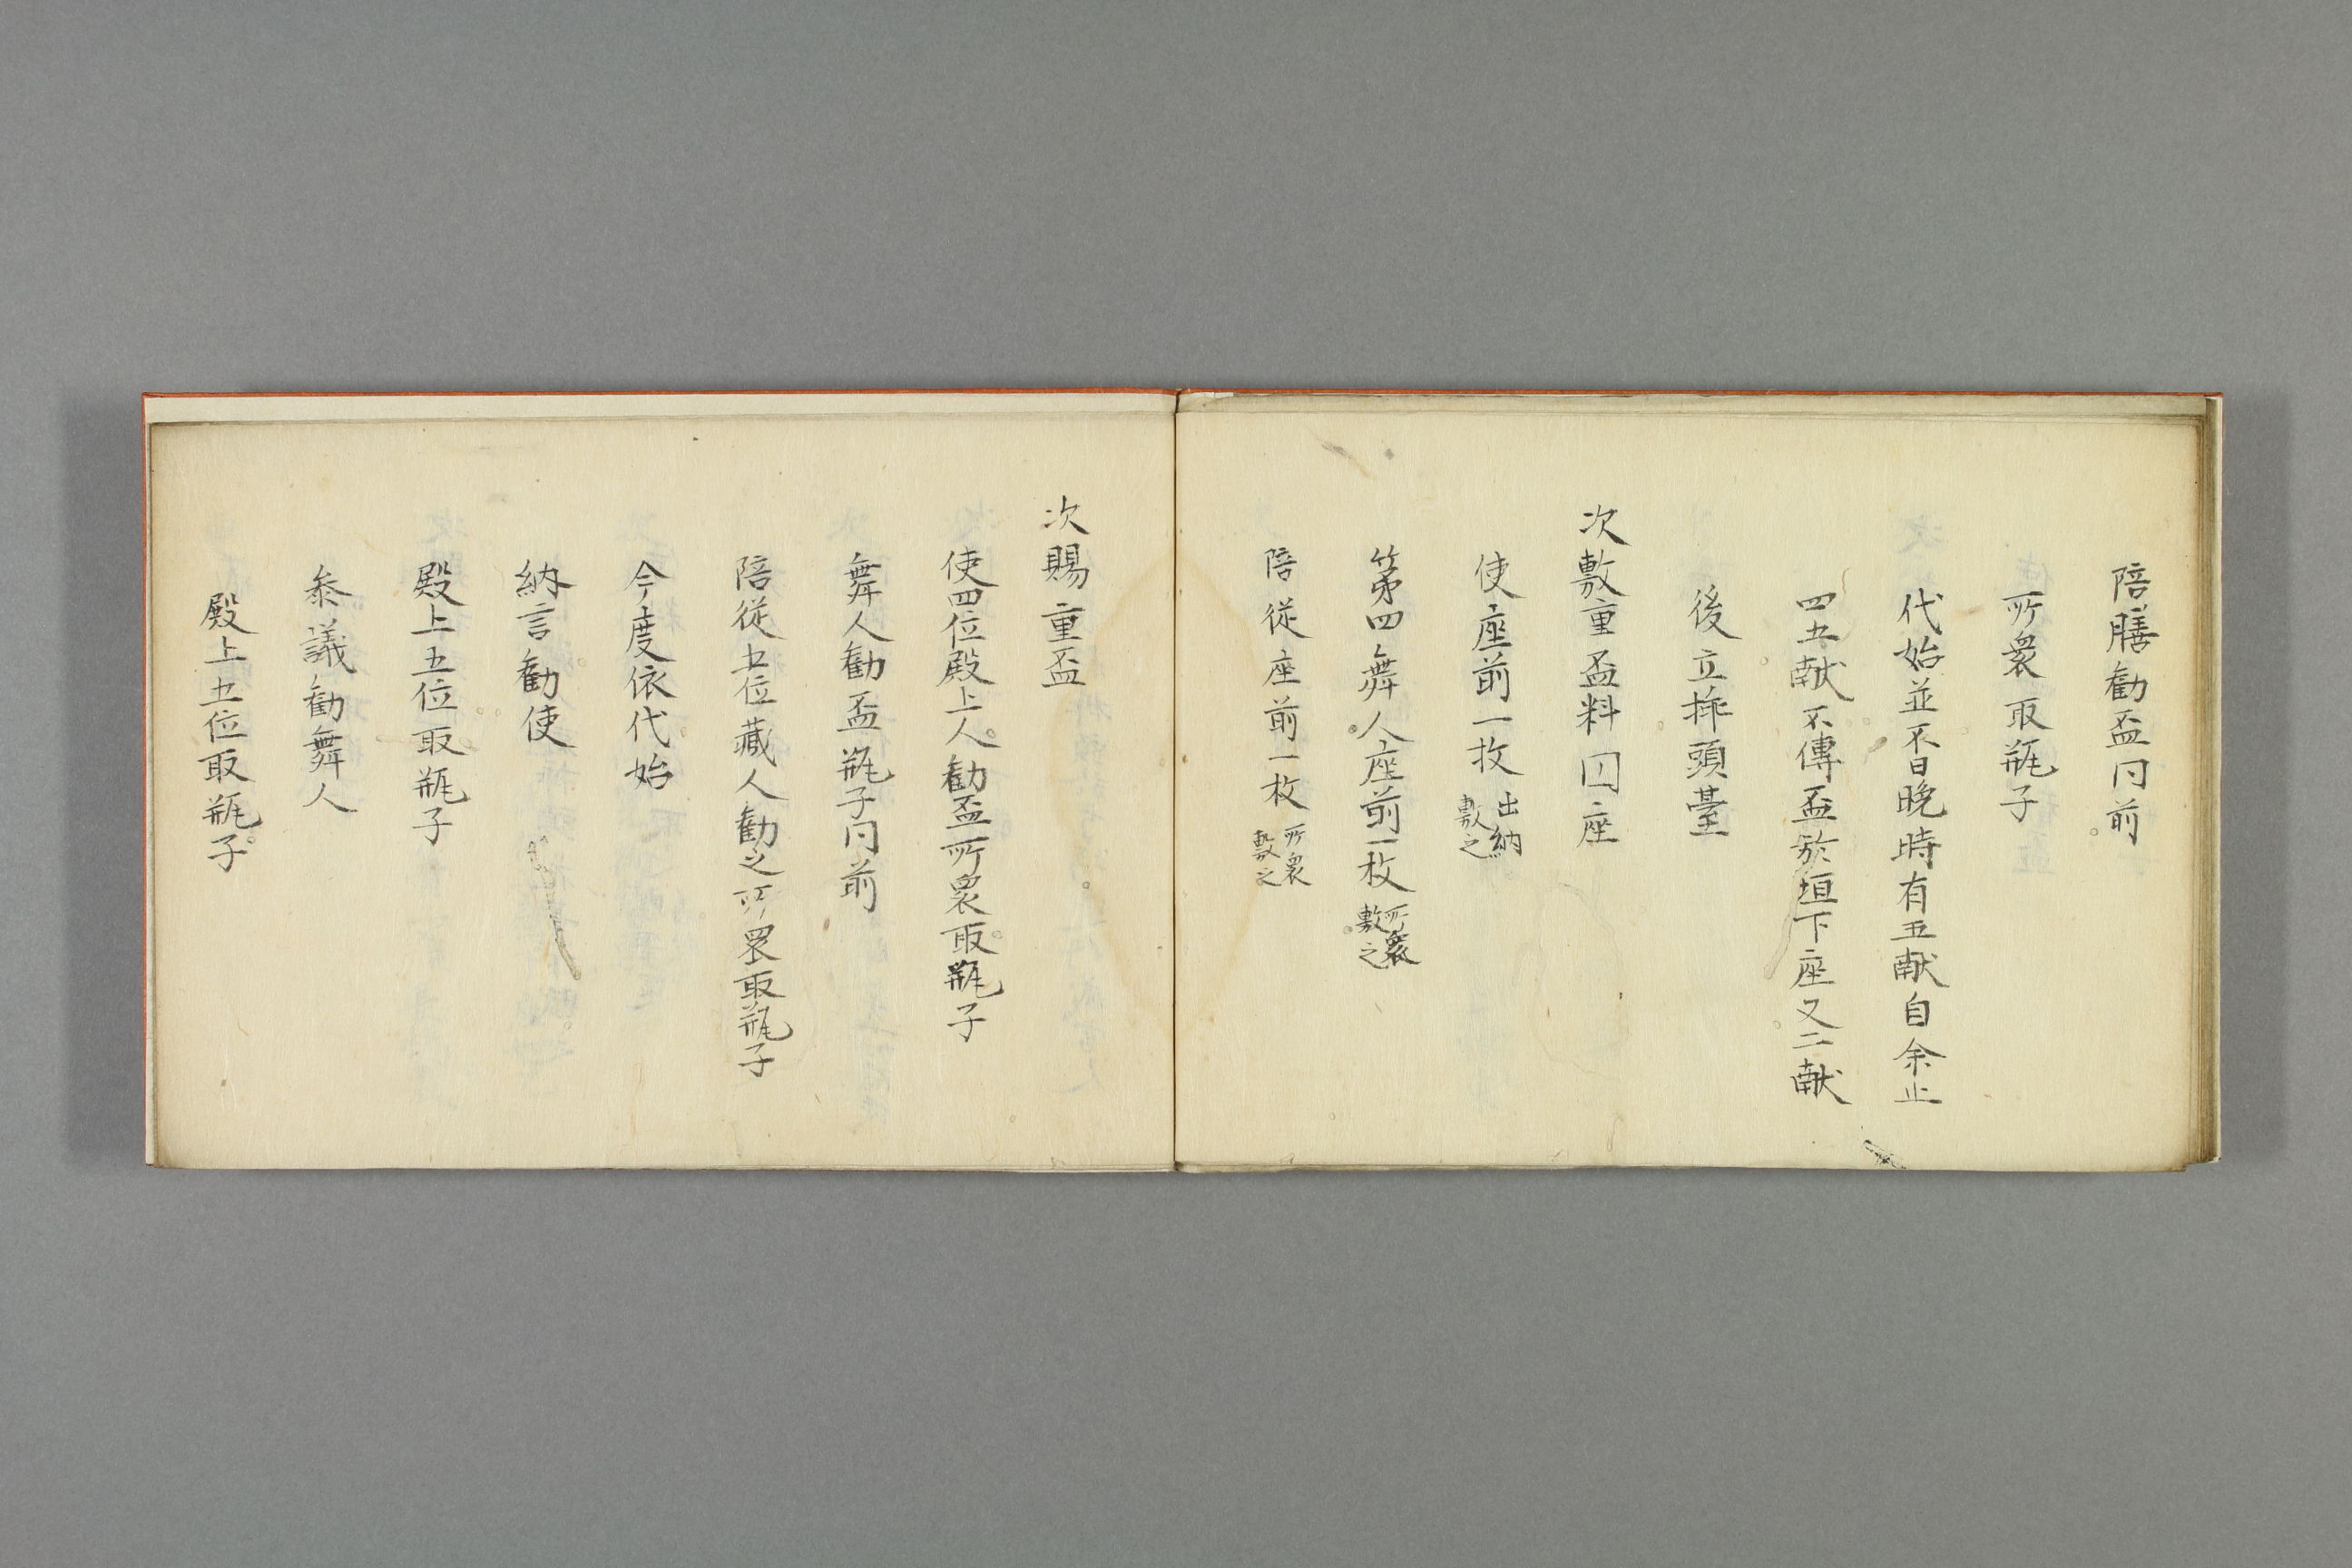 陪膳勧盃同前
所衆取瓶子
代始並不日晩時有五献自余止
四五献不傳盃於垣下座又二献
後立挿頭臺
次敷重盃料円座
使座前一枚出納敷之
第四舞人座前一枚所衆敷之
陪従座前一枚所衆敷之
次賜重盃
使四位殿上人勧盃所衆取瓶子
舞人勧盃瓶子同前
陪従五位蔵人勧之所衆取瓶子
今度依代始
納言勧使
殿上五位取瓶子
参議勧舞人
殿上五位取瓶子